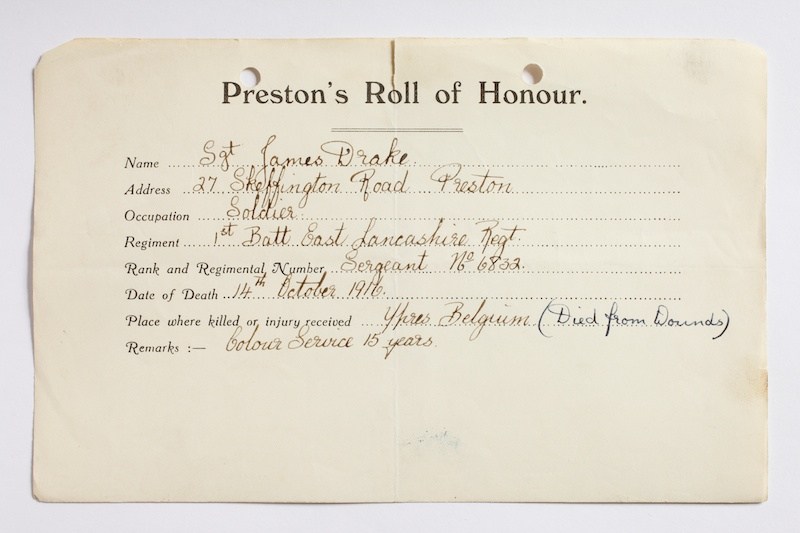 Preston's Roll of Honour.
Name Sgt James Drake.
Address 27 Skeffington Road Preston
Occupation Soldier.
Regiment 1st Batt East Lancashire Regt.
Rank and Regimental Number Sergeant No 6832.
Date of Death 14th October 1916.
Place where killed or injury received Ypres Belgium (Died from Wounds)
Remarks :— Colour Service 15 years.